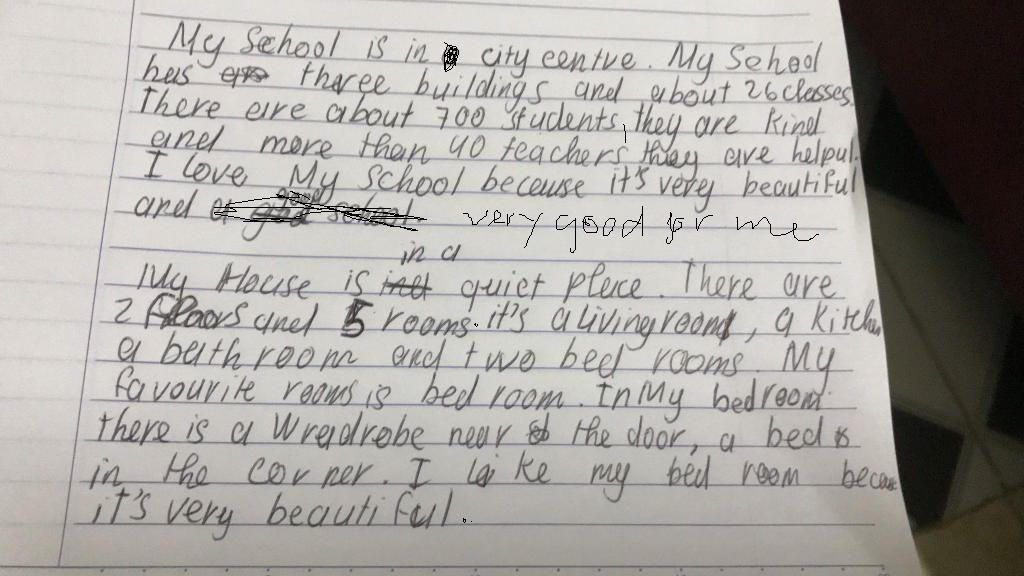 My School is in city centre. My School
has tharee buildings and about 26 classes.
There are about 700 students, they are kind
and more than 40 teachers, they are helpul.
I love My school because it's very beautiful
and very good for me
in a
My House is quiet place. There are
2 floors and 5 rooms. it's a living room, a kitchen
a bath room and two bed rooms. My
favourite rooms is bed room. In My bedroom
there is a Wreadrobe near the door, a bed is
in the corner. I like my bed room because
it's very beautiful.